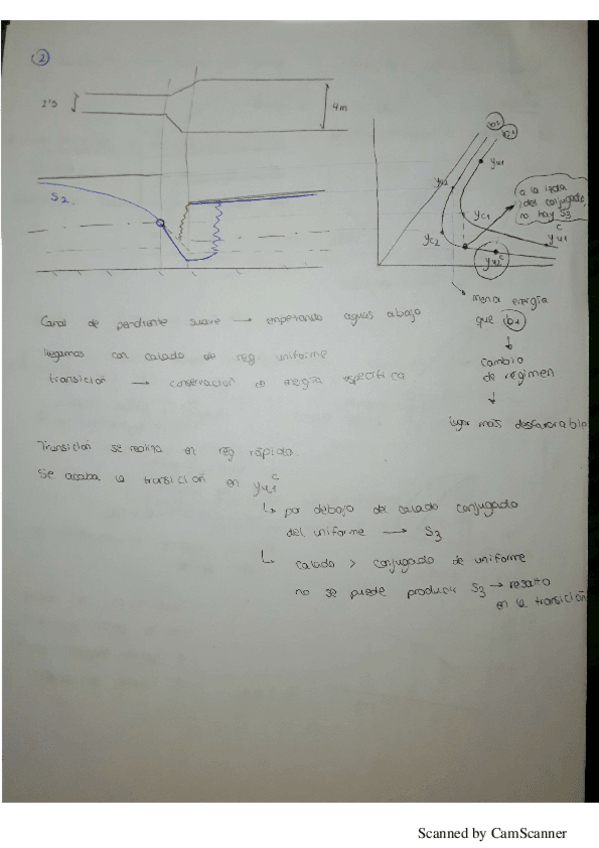 2
2'5
4m
S2
b1
b2
yu1
yu2
yc1
yc2
a la izda
del conjugado
no hay S3
yu1 c
yu2 c
menor energía
que b1
↓
cambio
de régimen
↓
lugar más desfavorable
Canal de pendiente suave → empezando aguas abajo
llegamos con calado de reg. uniforme
transición → conservación de energía específica
Transición se realiza en reg rápido.
Se acaba la transición en yu1 c
↳ por debajo del calado conjugado
del uniforme → S3
↳ calado > conjugado de uniforme
no se puede producir S3 → resalto
en la transición
Scanned by CamScanner